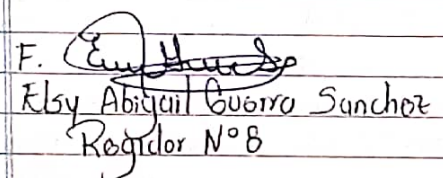 F.
Elsy Abigail Guerra Sanchez
Regidor N°8